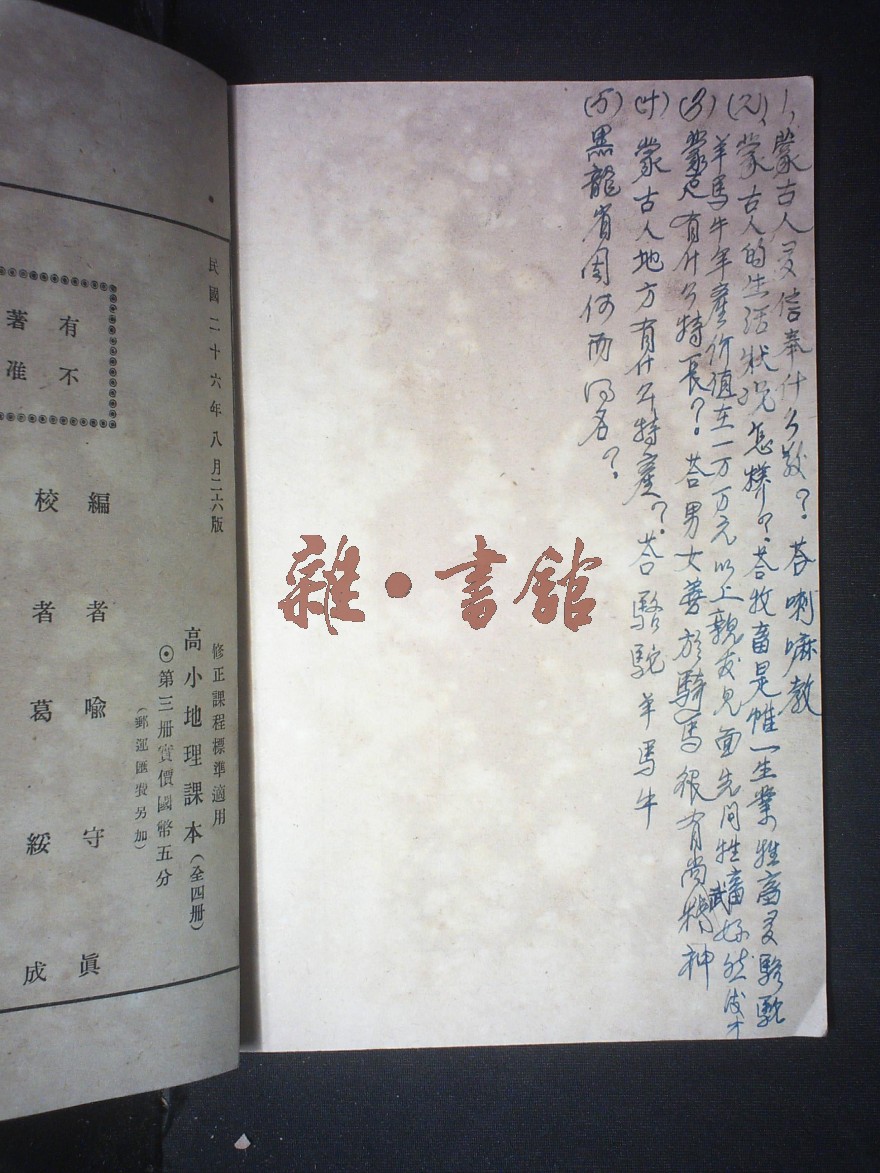 1、蒙古人多信奉什么教？答喇嘛教
(2)、蒙古人的生活狀况怎样？答牧畜是惟一生業牲畜多駱駝
羊馬牛年產价值在一万万元以上親友見面先问牲畜好然後才
(3)蒙民有什么特長？答男女善於騎馬很有尚武精神
(4)蒙古人地方有什么特產？答駱駝羊馬牛
(5)黑龍省因何而得名？
雜·書館
民國二十六年八月二六版
修正課程標準適用
高小地理課本（全四册）
⊙第三册實價國幣五分
（郵運匯費另加）
有不
著准
編者喻守眞
校者葛綏成